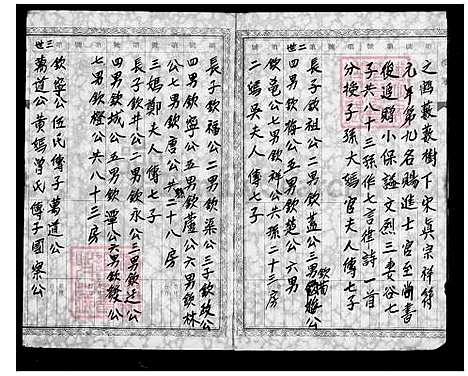 之鸱蔌蔌樹下宋真宗祥符
元年第九名賜進士官至尚書
後追贈小保謚文烈三妻谷七
子共八十三孫作七言律詩一首
分授子孫大媽官夫人傳七子
二媽吳夫人傳七子
二世
長子欽祖公二男欽蓋公三男欽梅公
四男欽海公五男欽楚公六男
欽竜公七男欽祥公共孫二十三房
長子欽福公二男欽渠公三子欽公
四男欽寧公五男欽蘆公六男欽林
公七男欽唐公共二十八房
三媽鄭夫人傳七子
長子欽井公二男欽永公三男欽廷公
四男欽城公五男欽公六男欽發公
七男欽橙公共八十三房
三世
欽寧公伍氏傳子萬道公
萬道公黃媽曾氏傳子國案公